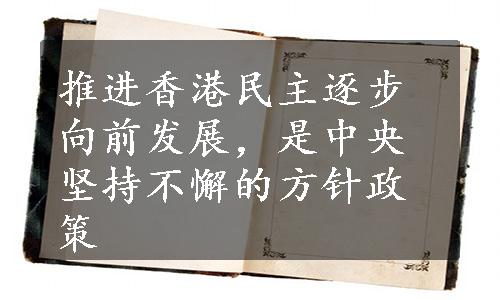 推进香港民主逐步
向前发展，是中央
坚持不懈的方针政
策